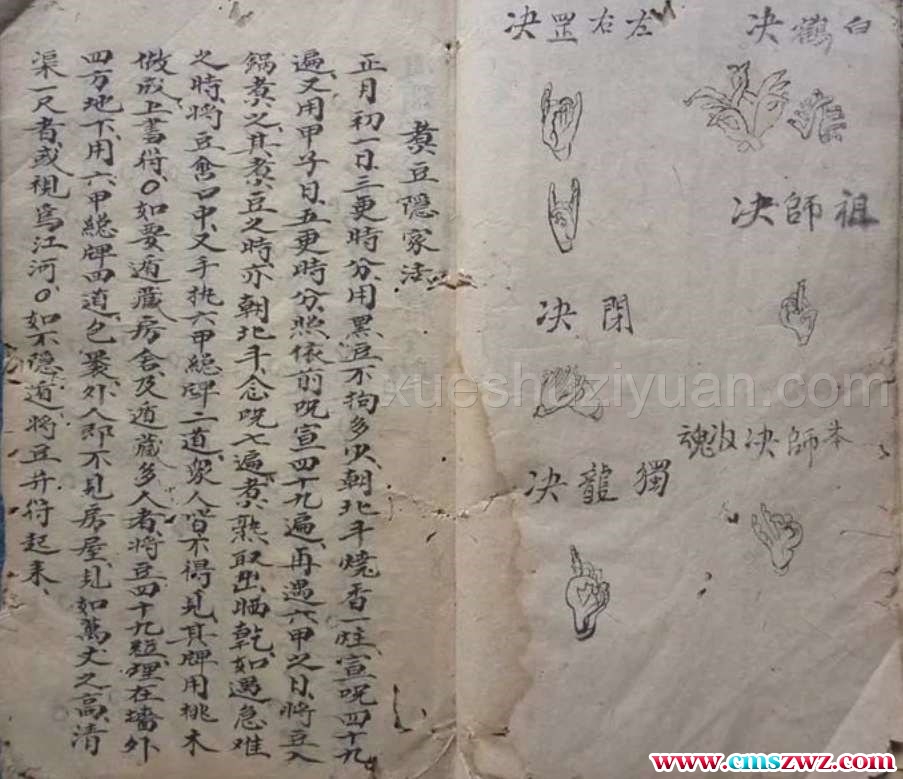 白鶴决
祖師决
本師决收魂
左右罡决
閉决
獨龍决
煑豆隱家法
正月初一日、三更時分、用黑豆不拘多少、朝北斗燒香一炷、宣呪四十九
遍、又用甲子日、五更時分、照依前呪宣四十九遍、再遇六甲之日、將豆入
鍋煑之、其煑豆之時、亦朝北斗、念呪七遍、煑熟、取出、晒乾、如遇急难
之時、將豆含口中、又手执六甲總牌二道、衆人皆不得見、其牌用桃木
做成、上書符、〇如要遁藏房舍、及遁藏多人者、將豆四十九粒、埋在墻外
四方地下、用六甲總牌四道、包裹、外人即不見房屋、見如萬丈之高、清
渠一尺者、或視爲江河、〇如不隱遁、將豆并符起来、
xueshuziyuan.com
www.cmszwz.com